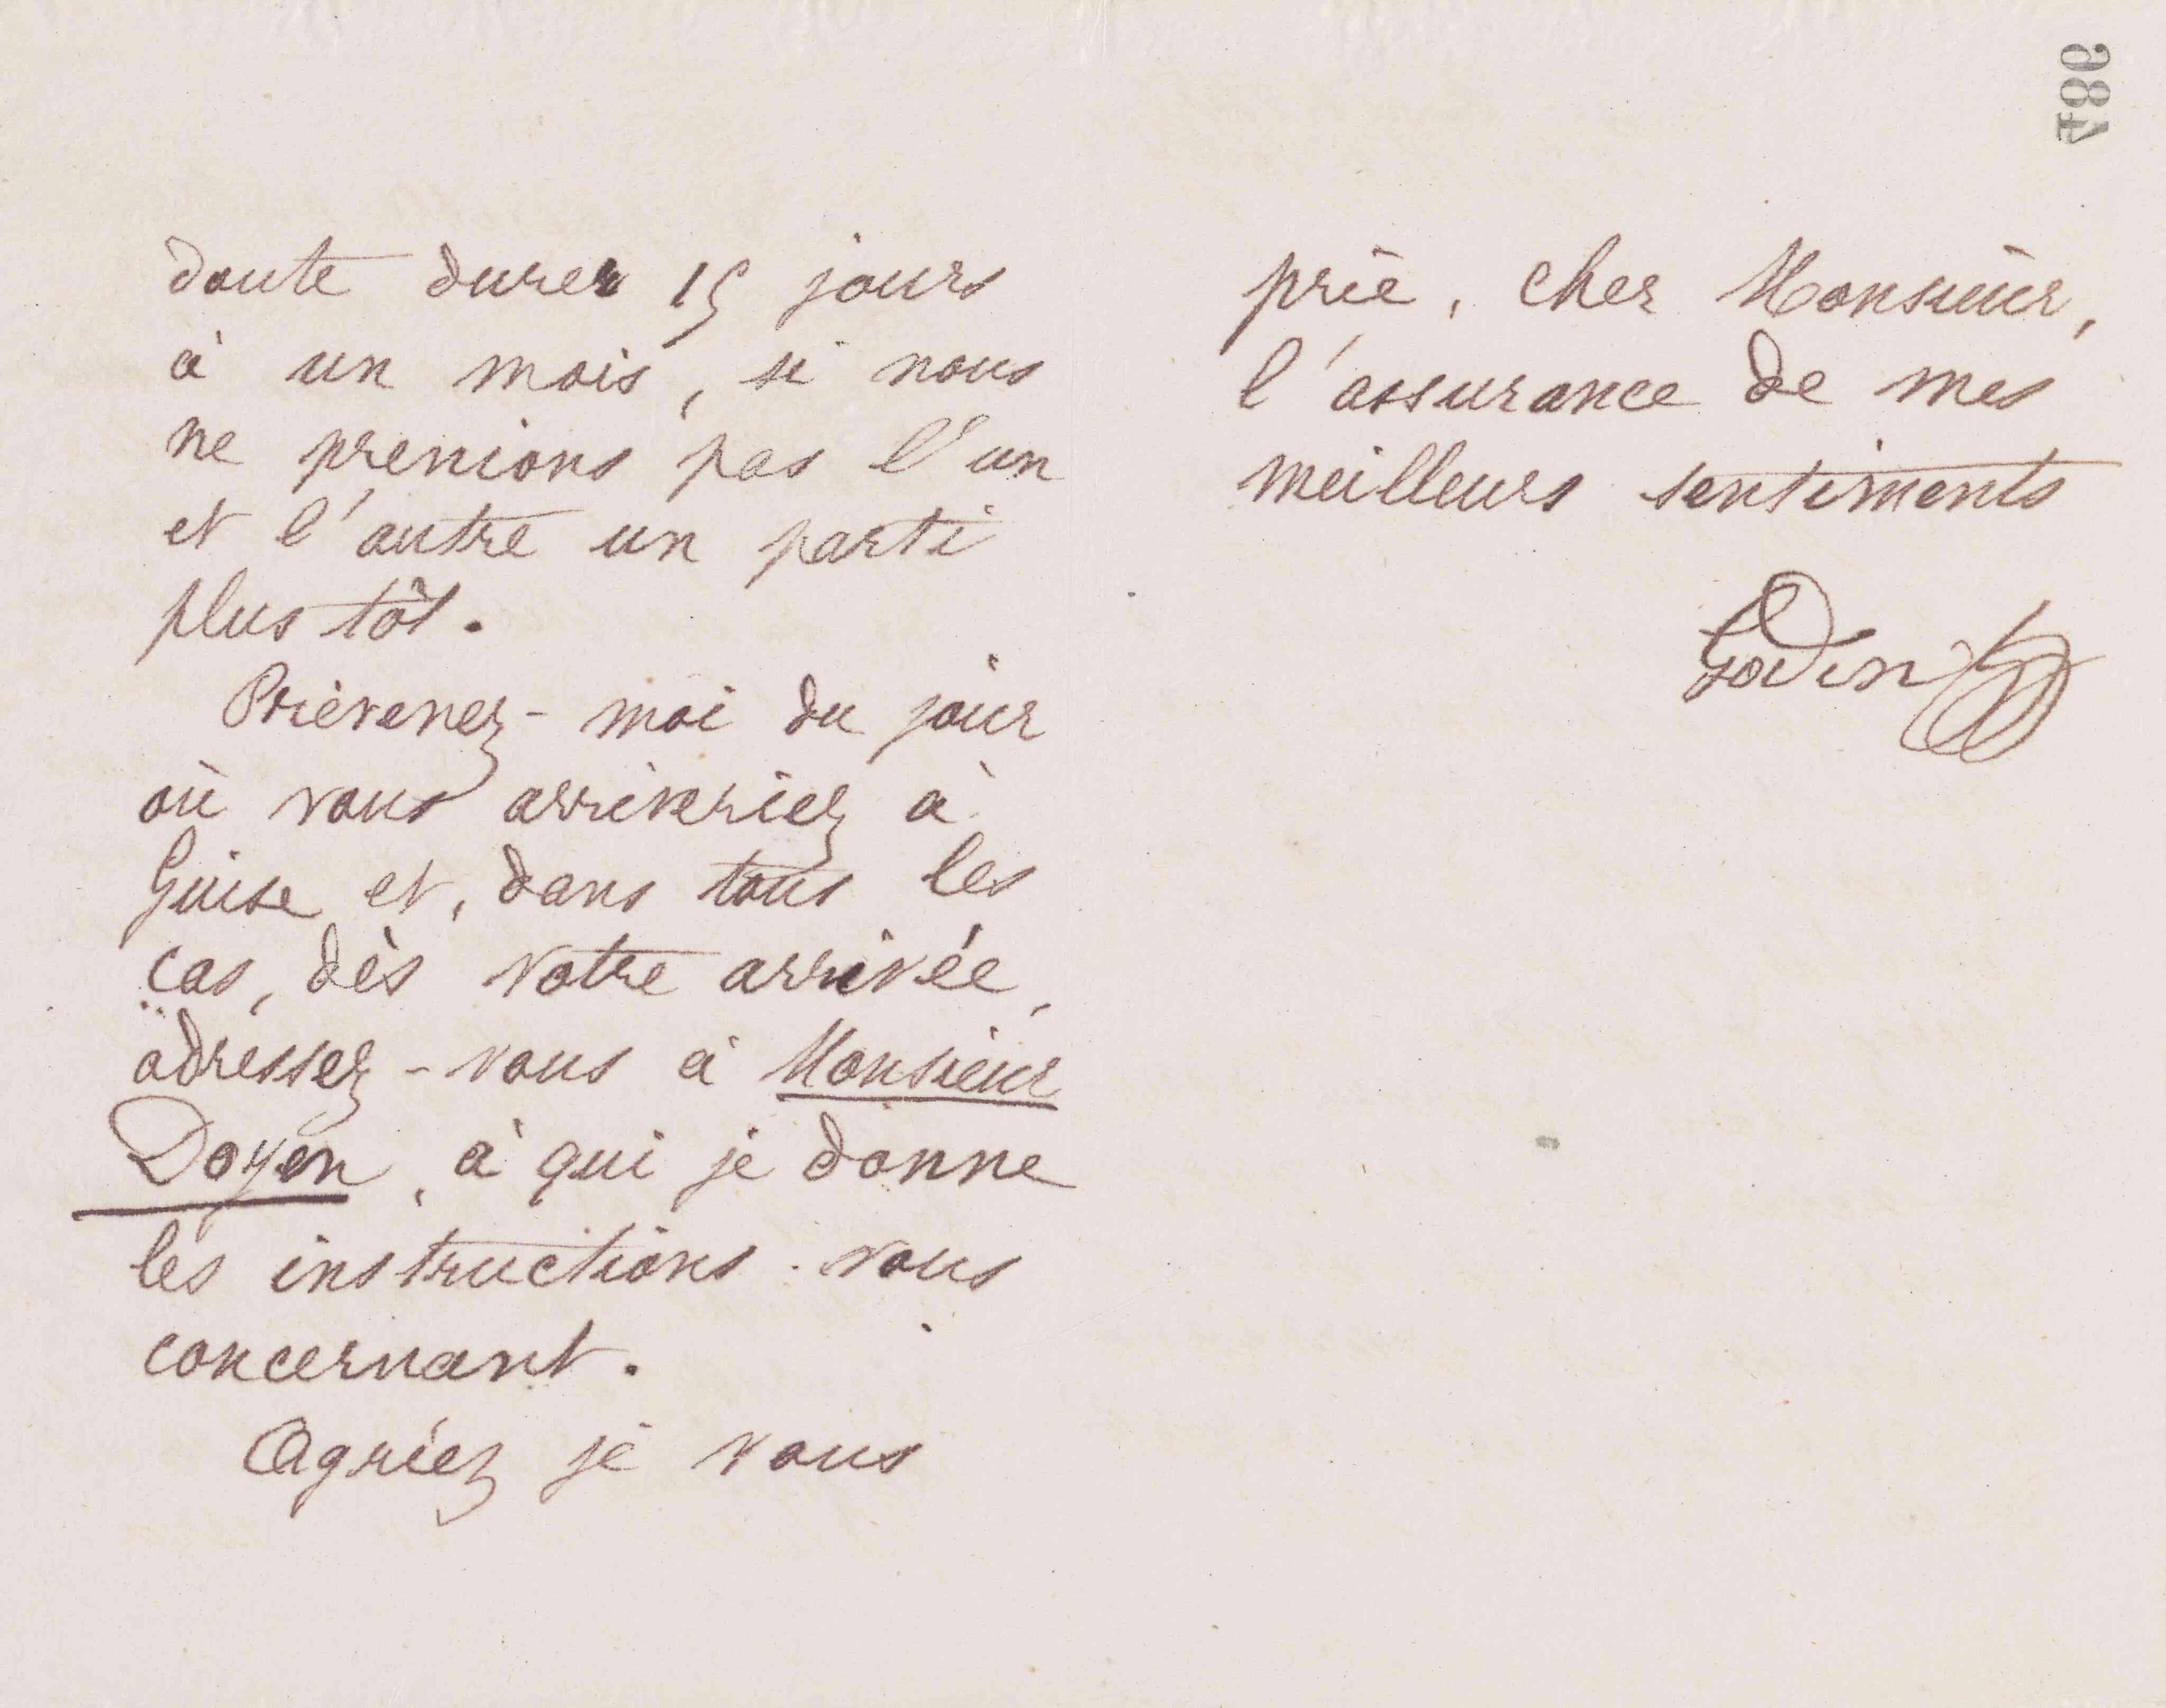 doute durer 15 jours
à un mois, si nous
ne prenions pas l'un
et l'autre un parti
plus tôt.
Prévenez-moi du jour
où vous arriveriez à
Guise et, dans tous les
cas, dès votre arrivée,
adressez-vous à Monsieur
Doyen, à qui je donne
les instructions vous
concernant.
Agréez je vous
486
prie, cher Monsieur,
l'assurance de mes
meilleurs sentiments
Godin